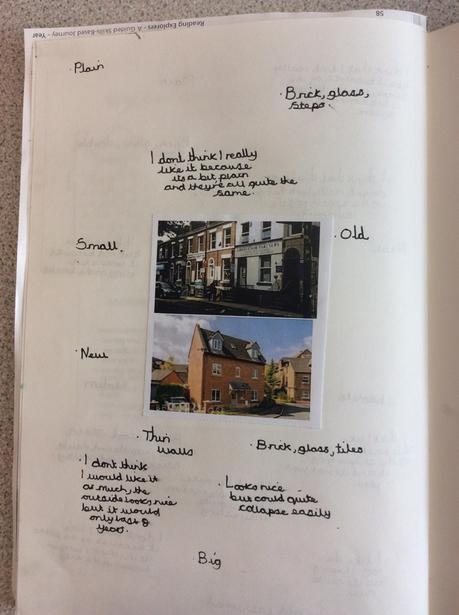 58
Reading Explorers - A Guided Skills-Based Journey - Year
· Plain
· Brick, glass,
steps.
I dont think I really
like it because
its a bit plain
and they're all quite the
same.
Small.
· Old
· New
· Thin
walls
· Brick, glass, tiles
· I dont think
I would like it
as much, the
outside looks nice
but it would
only last 8
years.
· Looks nice
but could quite
collapse easily
Big